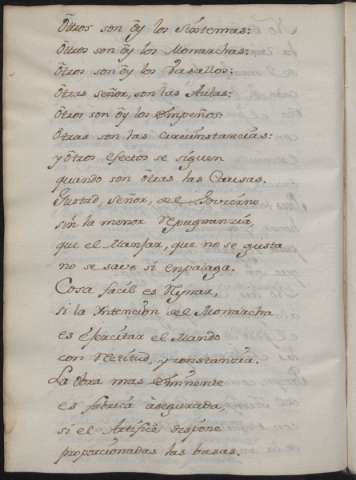 Otros son oy los Sistemas:
Otros son oy los Monarchas:
Otros son oy los Vasallos:
Otras señor, son las Aulas:
Otros son oy los Empeños:
Otras son las circunstancias:
y otros efectos se siguen
quando son otras las Causas.
Gustad, Señor, del Govierno
sin la menor Repugnancia,
que el Manjar, que no se gusta
no se save si enpalaga.
Cosa facil es Reynar,
si la Intencion del Monarcha
es exercitar el Mando
con Retitud, y constancia.
La Obra mas Eminente
es fabrica asegurada,
si el Artifice dispone
proporcionadas las basas.